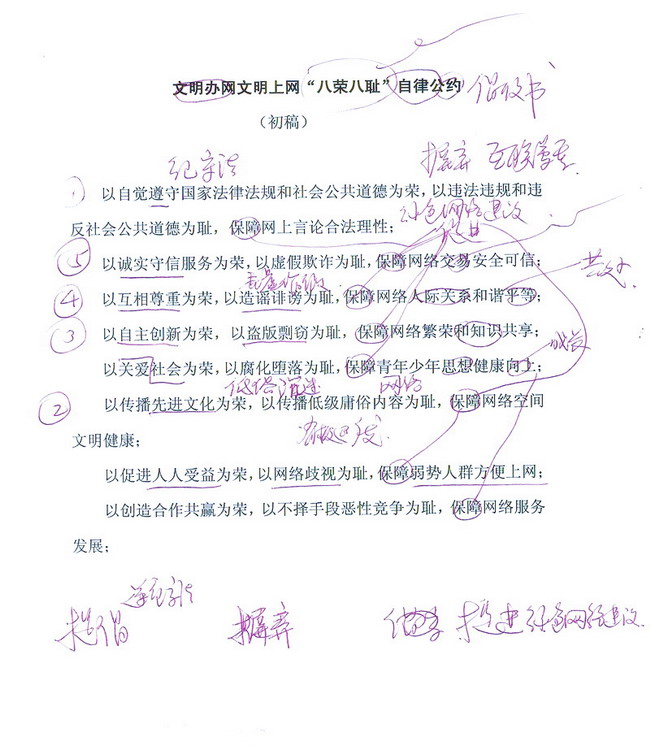 文明办网文明上网“八荣八耻”自律公约 倡议书
（初稿）
摒弃
① 以自觉遵守国家法律法规和社会公共道德为荣，以违法违规和违
绿色网络建设
反社会公共道德为耻，保障网上言论合法理性；
促进
⑤ 以诚实守信服务为荣，以虚假欺诈为耻，保障网络交易安全可信；
④ 以互相尊重为荣，以造谣诽谤为耻，保障网络人际关系和谐平等；
③ 以自主创新为荣，以盗版剽窃为耻，保障网络繁荣和知识共享；
以关爱社会为荣，以腐化堕落为耻，保障青年少年思想健康向上；
成长
低俗沉迷 网络
② 以传播先进文化为荣，以传播低级庸俗内容为耻，保障网络空间
文明健康；
以促进人人受益为荣，以网络歧视为耻，保障弱势人群方便上网；
以创造合作共赢为荣，以不择手段恶性竞争为耻，保障网络服务
发展；
提倡 摒弃 促进绿色网络建设